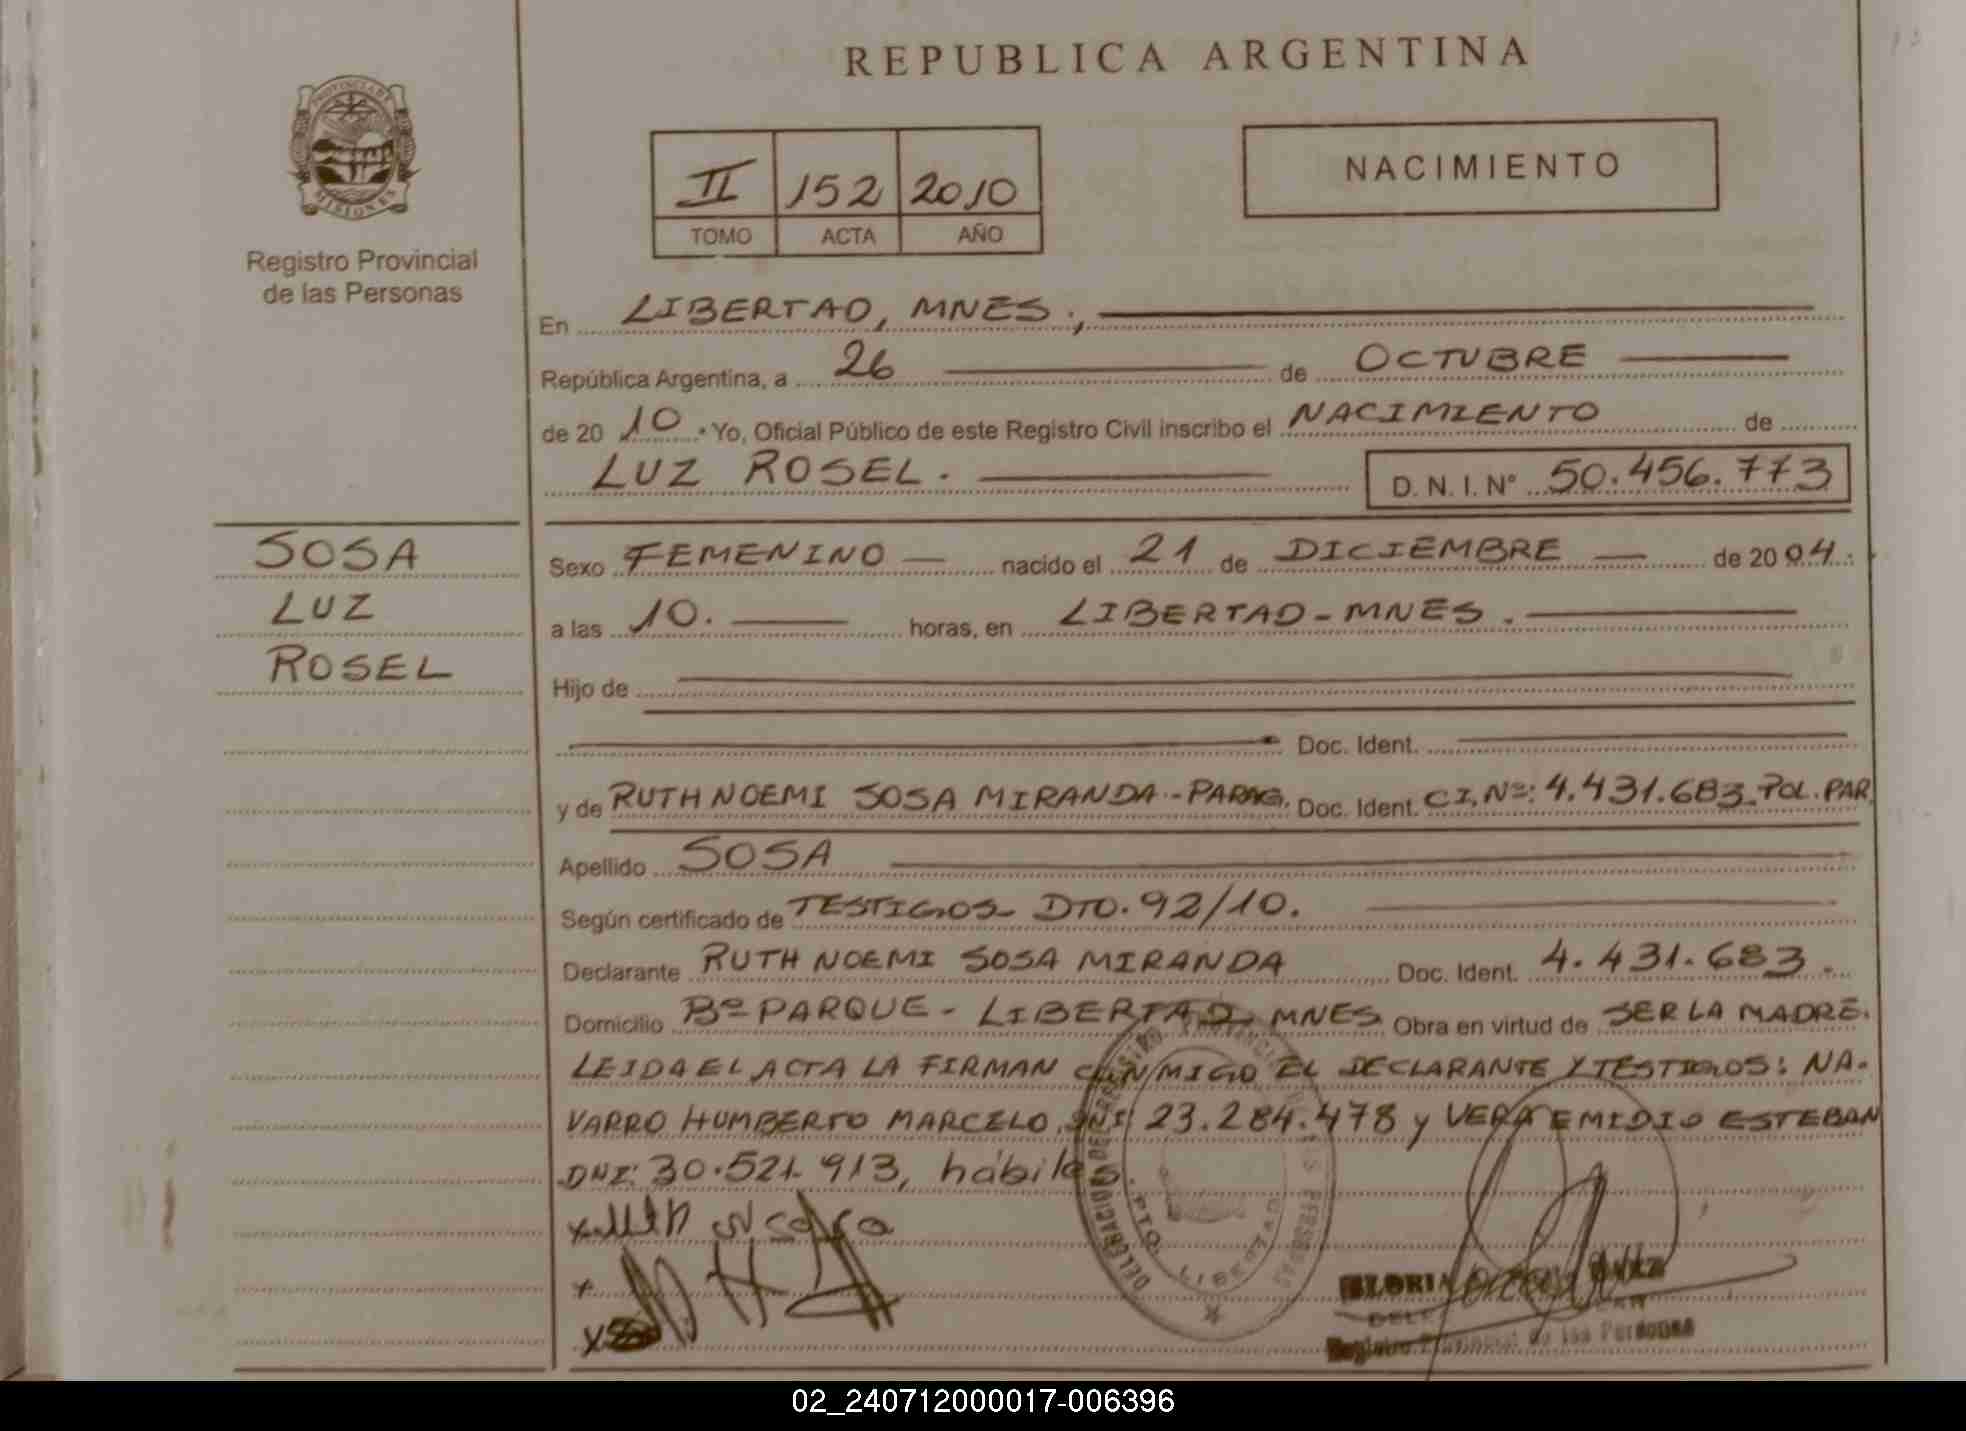 REPUBLICA ARGENTINA
PROVINCIA DE
MISIONES
Registro Provincial
de las Personas
II 152 2010
TOMO ACTA AÑO
NACIMIENTO
En LIBERTAD, MNES.,
República Argentina, a 26 de OCTUBRE
de 20 10 . Yo, Oficial Público de este Registro Civil inscribo el NACIMIENTO de
LUZ ROSEL. D. N. I. N° 50.456.773
SOSA
LUZ
ROSEL
Sexo FEMENINO nacido el 21 de DICIEMBRE de 20 04.
a las 10. horas, en LIBERTAD - MNES.
Hijo de
Doc. Ident.
y de RUTH NOEMI SOSA MIRANDA.-PARAG. Doc. Ident. CI, Nº: 4.431.683 POL. PAR.
Apellido SOSA
Según certificado de TESTIGOS - DTO. 92/10.
Declarante RUTH NOEMI SOSA MIRANDA Doc. Ident. 4.431.683.
Domicilio Bº PARQUE - LIBERTAD MNES Obra en virtud de SER LA MADRE.
LEIDA EL ACTA LA FIRMAN CONMIGO EL DECLARANTE Y TESTIGOS: NA-
VARRO HUMBERTO MARCELO, DNI: 23.284.478 y VERA EMIDIO ESTEBAN
DNI: 30.521.913, hábiles
PTO. LIBERTAD
GLORIA
Registro Provincial de las Personas
02_240712000017-006396